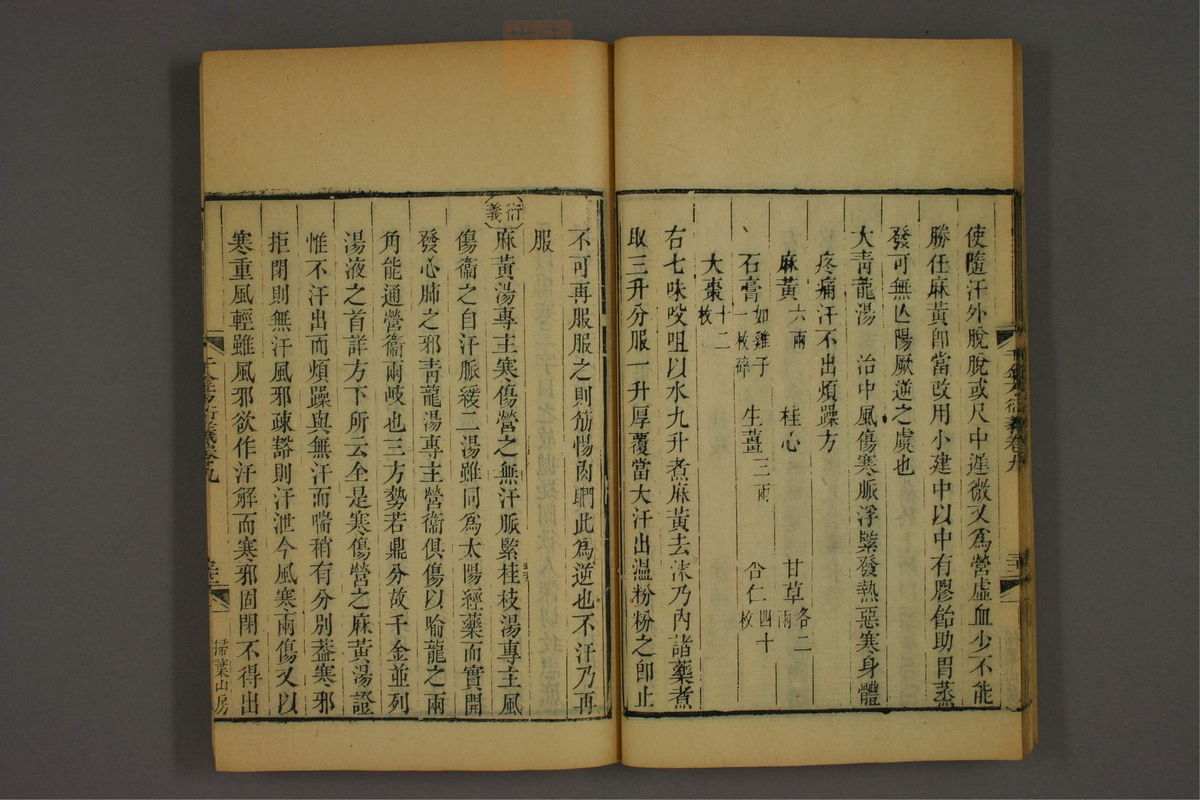 使隨汗外脫脫或尺中遲微又爲營虛血少不能
勝任麻黃卽當改用小建中以中有膠飴助胃蒸
發可無亾陽厥逆之虞也
大靑龍湯　治中風傷寒脈浮緊發熱惡寒身體
疼痛汗不出煩躁方
麻黃六兩　桂心　甘草各二兩
石膏如雞子一枚碎　生薑三兩　杏仁四十枚
大棗十二枚
右七味㕮咀以水九升煮麻黃去沫乃內諸藥煮
取三升分服一升厚覆當大汗出溫粉粉之卽止
不可再服服之則筋惕肉瞤此爲逆也不汗乃再
服
衍義　麻黃湯專主寒傷營之無汗脈緊桂枝湯專主風
傷衞之自汗脈緩二湯雖同爲太陽經藥而實開
發心肺之邪靑龍湯專主營衞俱傷以喻龍之兩
角能通營衞兩岐也三方勢若鼎分故千金並列
湯液之首詳方下所云全是寒傷營之麻黃湯證
惟不汗出而煩躁與無汗而喘稍有分別葢寒邪
拒閉則無汗風邪疎豁則汗泄今風寒兩傷又以
寒重風輕雖風邪欲作汗解而寒邪固閉不得出
千金方衍義卷九
掃葉山房